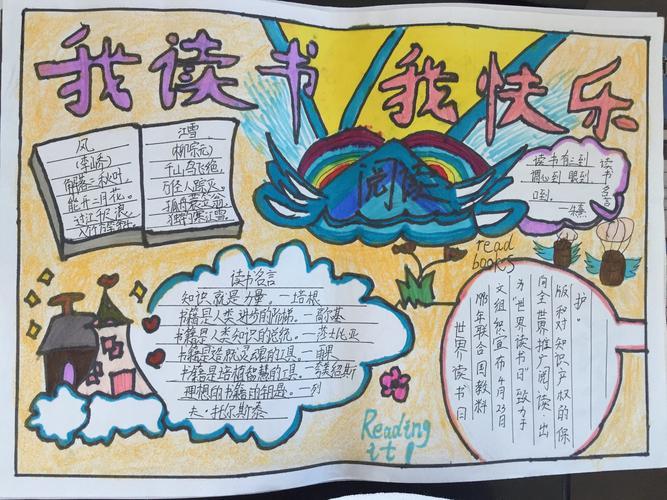 我读书 我快乐
风
(李峤)
解落三秋叶,
能开二月花。
过江千尺浪,
入竹万竿斜。
江雪
(柳宗元)
千山鸟飞绝,
万径人踪灭。
孤舟蓑立翁,
独钓寒江雪。
阅读
读书名言
读书有三到
谓心到 眼到
口到。
—朱熹
read
books
读书名言
知识就是力量。—培根
书籍是人类进步的阶梯。—高尔基
书籍是人类知识的总统。—莎士比亚
书籍是造就灵魂的工具。—雨果
书籍是培植智慧的工具。—夸美绍斯
理想的书籍的钥匙。—列
夫·托尔斯泰
世界读书日
1995年联合国教科
文组织宣布4月23日
为“世界读书日”致力于
向全世界推广阅读、出
版和对知识产权的保
护。
Reading
it!